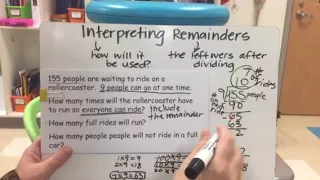 Interpreting Remainders
how will it
be used?
the leftovers after
dividing
155 people are waiting to ride on a
rollercoaster. 9 people can go at one time.
How many times will the rollercoaster have
to run so everyone can ride?
include
the remainder
How many full rides will run?
How many people people will not ride in a full
car?
7
10
# of
rides
9 155 people
-90
65
63
2
1x9=9
2x9=18
100x9=